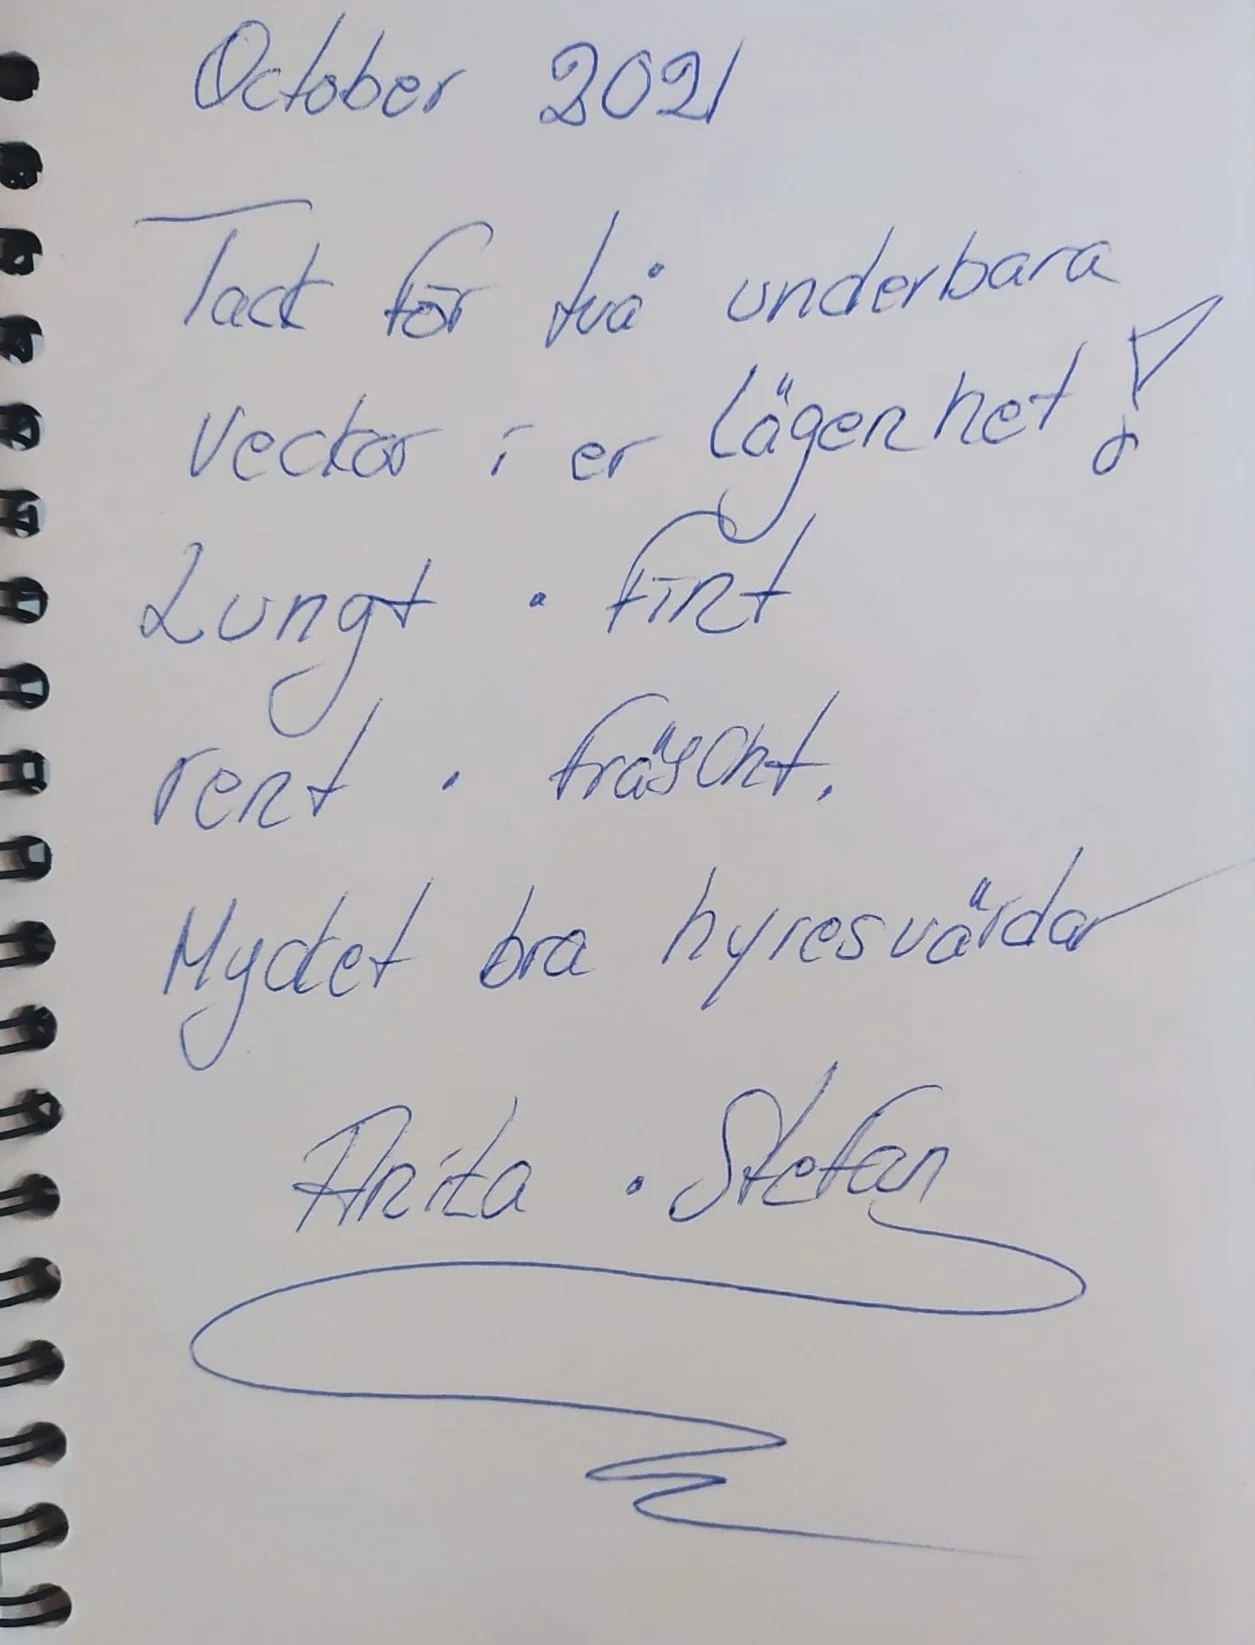 October 2021
Tack för två underbara
veckor i er lägenhet!
Lungt • fint
rent • fräscht.
Mycket bra hyresvärdar
Anita • Stefan